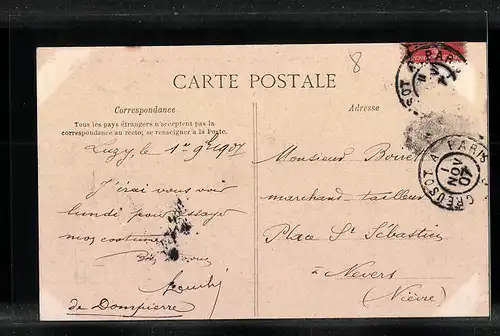 8
CARTE POSTALE
Correspondance
Tous les pays étrangers n'acceptent pas la
correspondance au recto; se renseigner à la Poste.
Luzy, le 1er 9bre 1907
J'irai vous voir
lundi pour essayage
mon costume
de Dompierre
Adresse
Monsieur
marchand-tailleur
Place St Sébastien
à Nevers
(Nièvre)
CREUSOT A PARIS
1
NOV
07